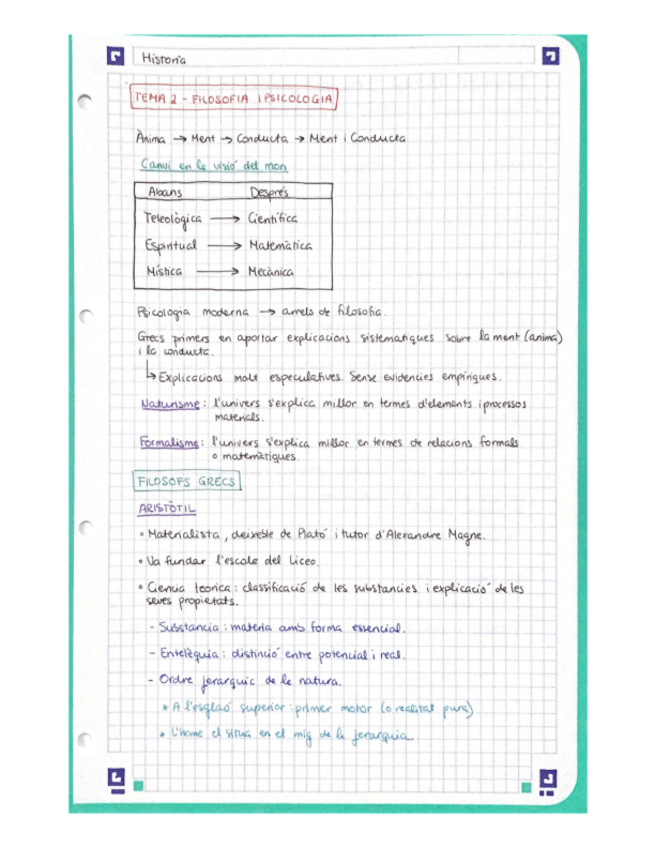 Historia
TEMA 2 - FILOSOFIA I PSICOLOGIA
Ànima → Ment → Conducta → Ment i Conducta
Canvi en la visió del mon
Abans Després
Teleològica → Científica
Espiritual → Matemàtica
Mística → Mecànica
Psicologia moderna → arrels de filosofia.
Grecs primers en aportar explicacions sistematiques sobre la ment (anima)
i la conducta.
↳ Explicacions molt especulatives. Sense evidencies empíriques.
Naturisme: l'univers s'explica millor en termes d'elements i processos
materials.
Formalisme: l'univers s'explica millor en termes de relacions formals
o matemàtiques.
FILOSOFS GRECS
ARISTÒTIL
• Materialista, deixeble de Plató i tutor d'Alexandre Magne.
• Va fundar l'escola del Liceo.
• Ciencia teorica: classificació de les substancies i explicació de les
seves propietats.
- Substancia: materia amb forma essencial.
- Entelèquia: distinció entre potencial i real.
- Ordre jerarquic de la natura.
* A l'esglaó superior: primer motor (o realitat pura)
* L'home el situa en el mig de la jerarquia.